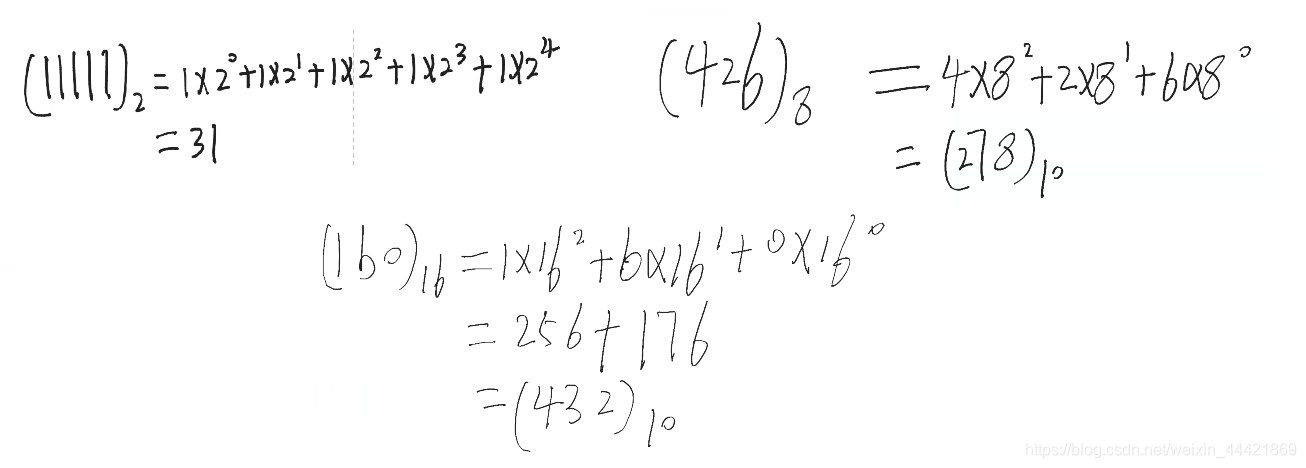 (11111)₂ = 1×2⁰+1×2¹+1×2²+1×2³+1×2⁴
= 31
(426)₈ = 4×8²+2×8¹+6×8⁰
= (278)₁₀
(1b0)₁₆ = 1×16²+b×16¹+0×16⁰
= 256+176
= (432)₁₀
https://blog.csdn.net/weixin_44421869